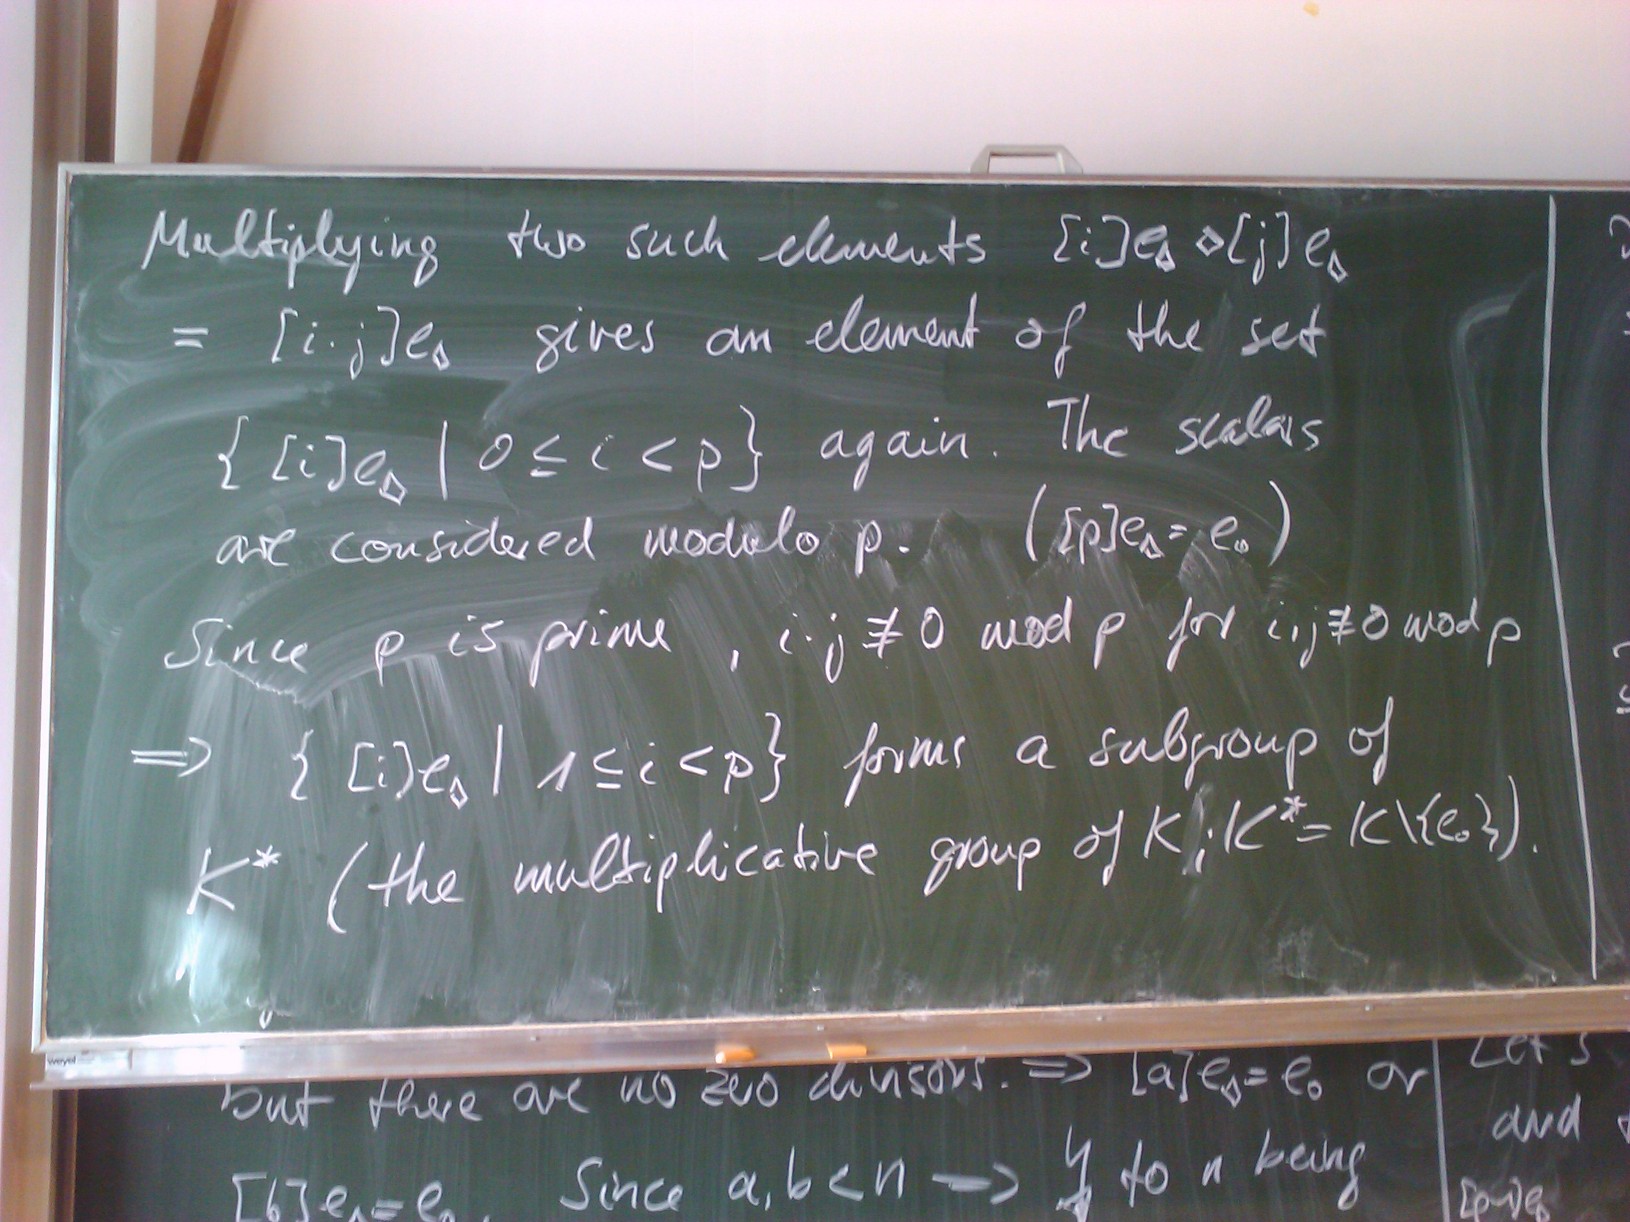 Multiplying two such elements [i]e◊ ◊ [j]e◊
= [i·j]e◊ gives an element of the set
{ [i]e◊ | 0 ≤ i < p} again. The scalars
are considered modulo p. ([p]e◊ = e∘)
Since p is prime, i·j ≢ 0 mod p for i,j ≢ 0 mod p
=> { [i]e◊ | 1 ≤ i < p} forms a subgroup of
K* (the multiplicative group of K; K* = K\{e∘}).
weyel
but there are no zero divisors. => [a]e◊ = e∘ or
[b]e◊ = e∘. Since a,b < n => to n being
Let's
and